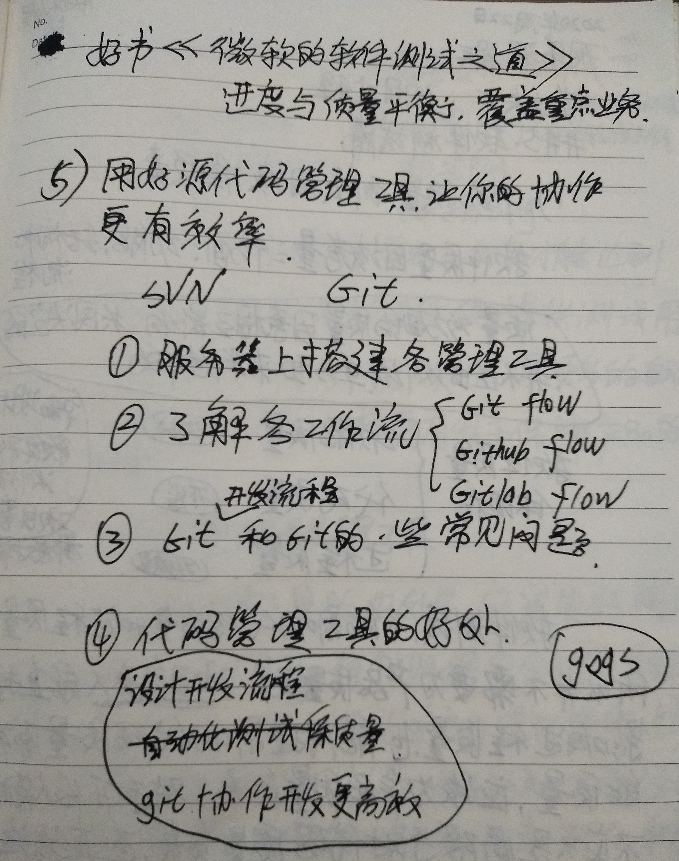 No.
好书《微软的软件测试之道》
进度与质量平衡, 覆盖重点业务.
5) 用好源代码管理工具,让你的协作
更有效率.
SVN Git.
① 服务器上搭建各管理工具
② 了解各工作流 { Git flow
Github flow
Gitlab flow
开发流程
③ Git 和 Git的一些常见问题.
④ 代码管理工具的好处.
gogs
设计开发流程
自动化测试保质量.
git 协作开发更高效